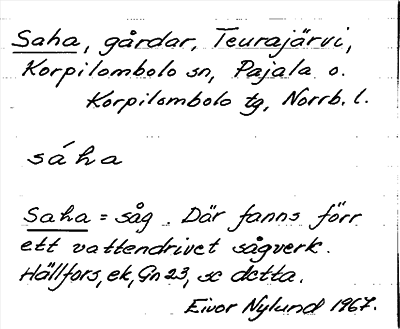 Saha, gårdar, Teurajärvi,
Korpilombolo sn, Pajala o.
Korpilombolo tg, Norrb. l.
sáha
Saha = såg. Där fanns förr
ett vattendrivet sågverk.
Hällfors, ek, Gn 23, sc detta.
Eivor Nylund 1967.